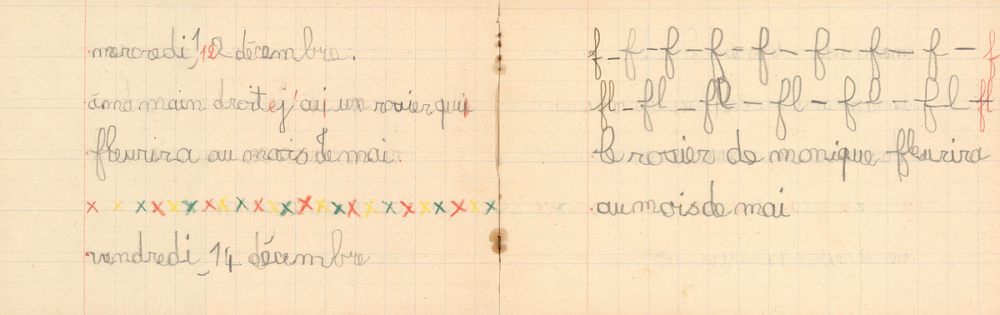 mercredi, 12 décembre.
à ma main droite j'ai un rosier qui
fleurira au mois de mai.
vendredi 14 décembre
f - f - f - f - f - f - f - f - f
fl - fl - fl - fl - fl - fl fl
le rosier de monique fleurira
au mois de mai